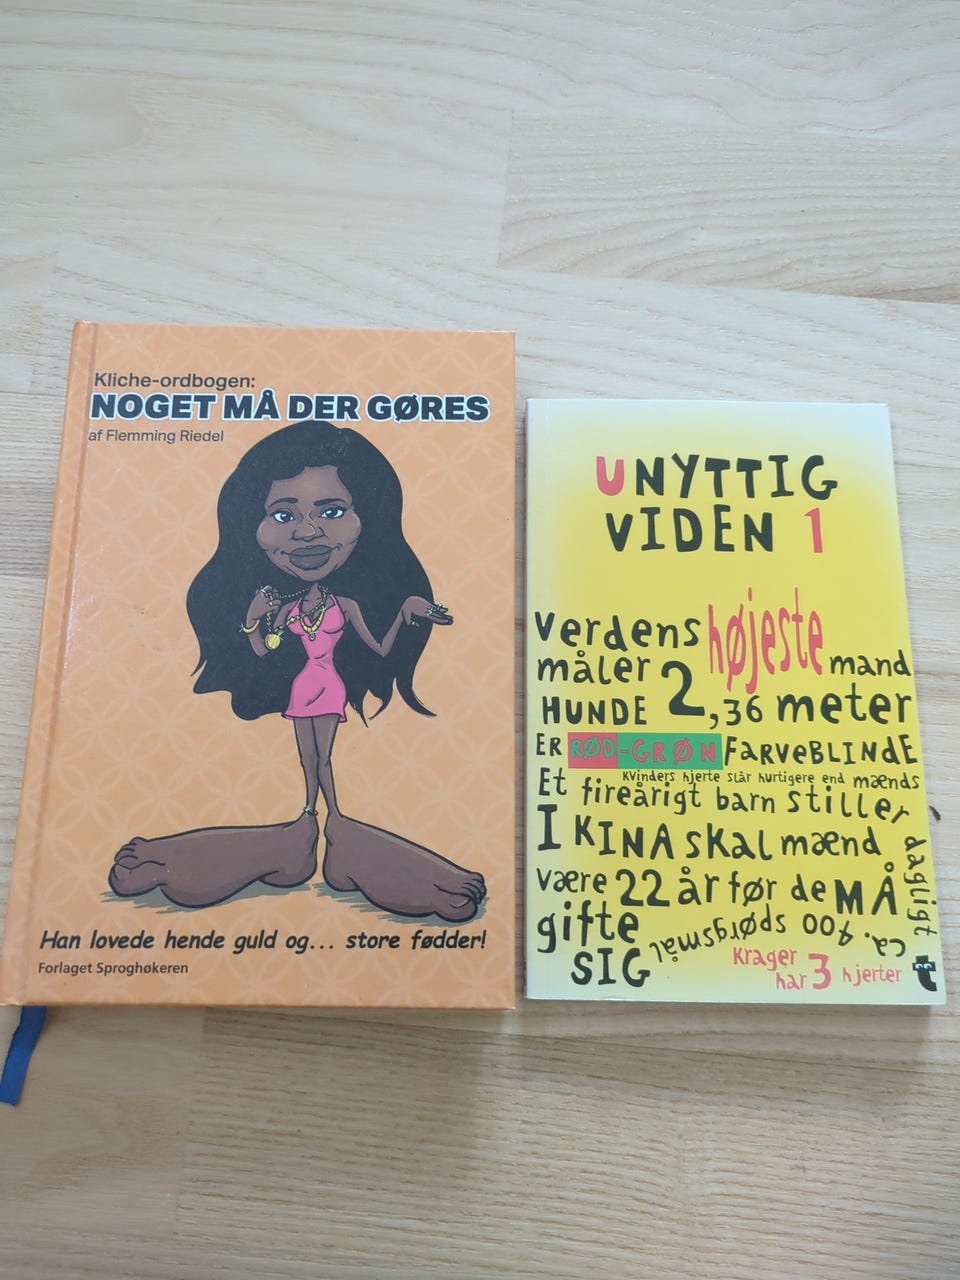 Kliche-ordbogen:
NOGET MÅ DER GØRES
af Flemming Riedel
Han lovede hende guld og... store fødder!
Forlaget Sproghøkeren
UNYTTIG
VIDEN 1
verdens højeste mand
måler 2,36 meter
HUNDE
ER RØD-GRØN FARVEBLINDE
Kvinders hjerte slår hurtigere end mænds
Et fireårigt barn stiller dagligt ca. 400 spørgsmål
I KINA skal mænd
være 22 år før de MÅ
gifte
SIG
Krager
har 3 hjerter
t